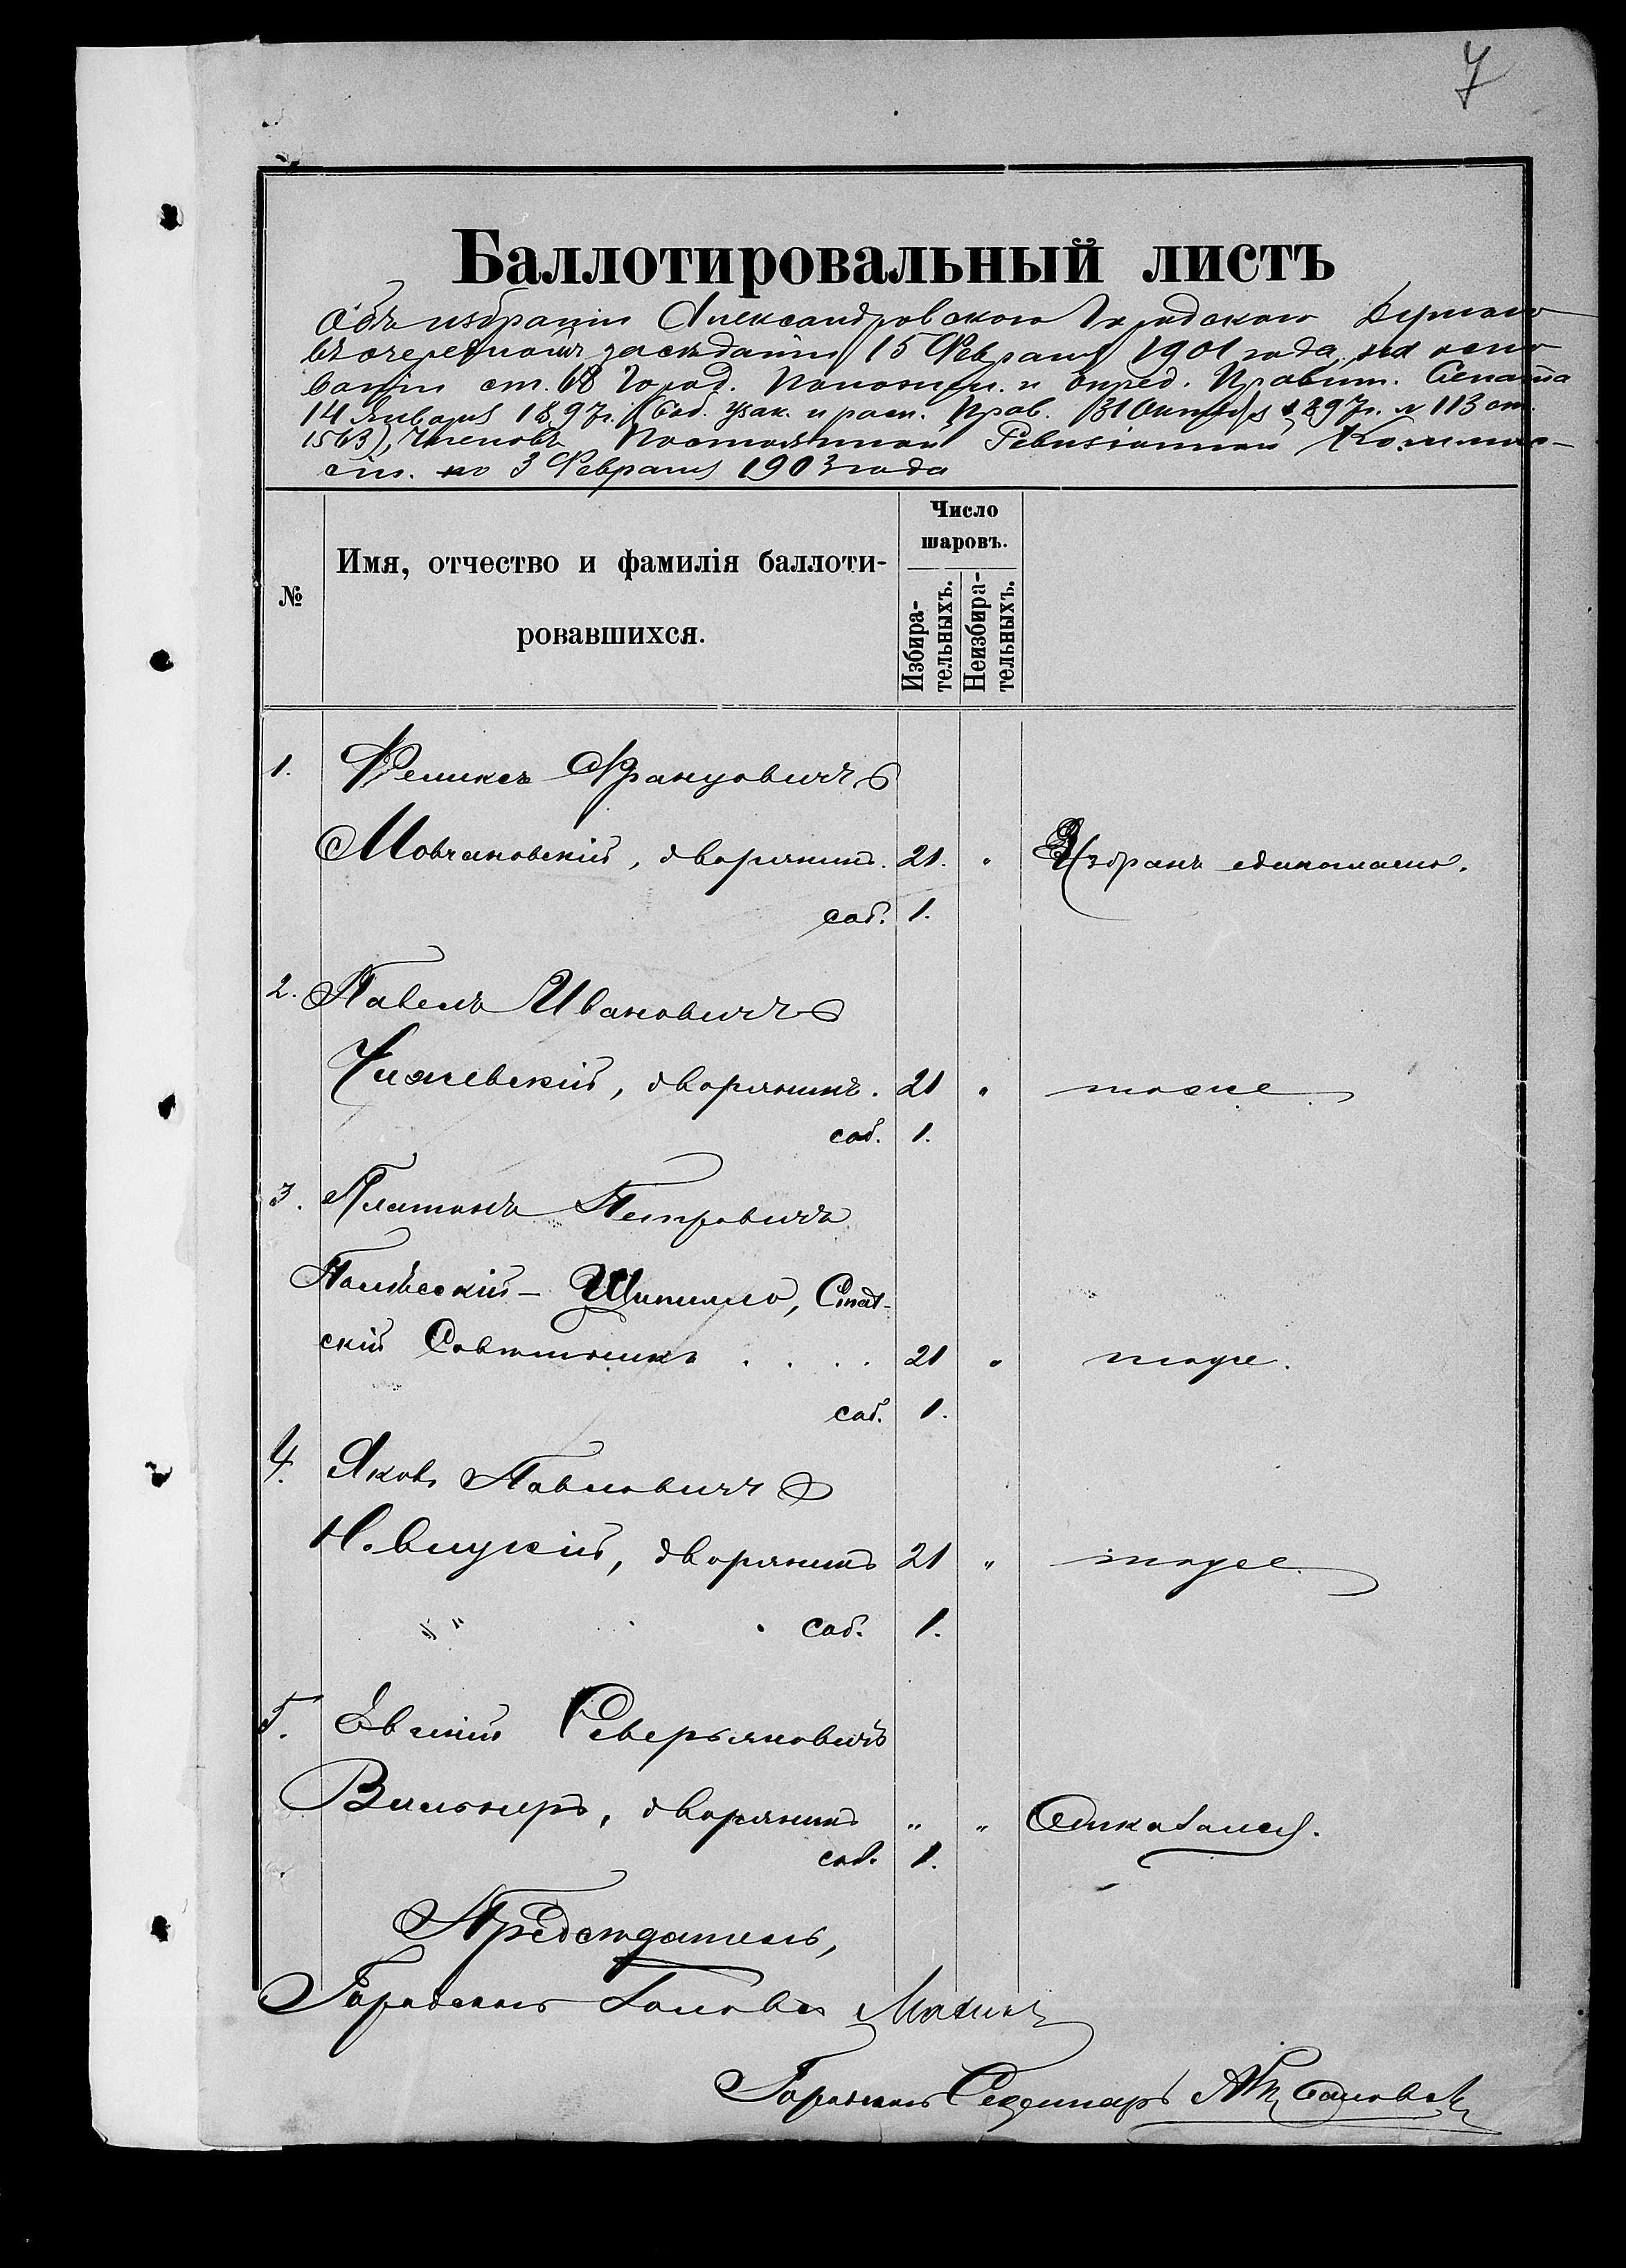 7
Баллотировальный листъ
Объ избраніи Александровскою Городскою Думою
въ очередномъ засѣданіи 15 Февраля 1901 года, на осно-
ваніи ст. 68 Город. Положен. и опред. Правит. Сената
14 Января 1897г. (Соб. узак. и расп. Прав. 31 Октября 1897г. № 113 ст.
1563), Членовъ Постоянной Ревизіонной Коммис-
сіи по 3 Февраля 1903 года
№
Имя, отчество и фамилія баллоти-
ровавшихся.
Число
шаровъ.
Избира-
тельныхъ.
Неизбира-
тельныхъ.
1. Феликсъ Францовичъ
Мовчановскій, дворянинъ. 21. " Избранъ единогласно.
соб. 1.
2. Павелъ Ивановичъ
Чижевскій, дворянинъ. 21 " тоже
соб. 1.
3. Платонъ Петровичъ
Полѣсскій - Щипилло, Стат-
скій Совѣтникъ . . . . 21 " тоже.
соб. 1.
4. Яковъ Павловичъ
Новицкій, дворянинъ 21 " тоже
" соб. 1.
5. Северьяновичъ
дворянинъ " " Отказался.
соб. 1.
Предсѣдатель,
Городской Голова
Городской Секретарь